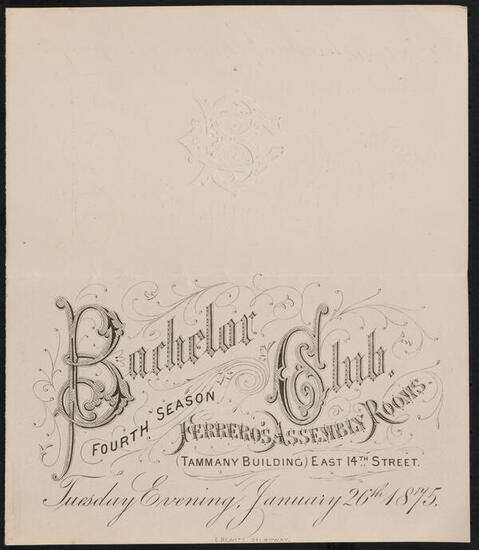 Bachelor Club.
FOURTH SEASON
FERRERO'S ASSEMBLY ROOMS.
(TAMMANY BUILDING) EAST 14TH STREET.
Tuesday Evening, January 26th 1875.